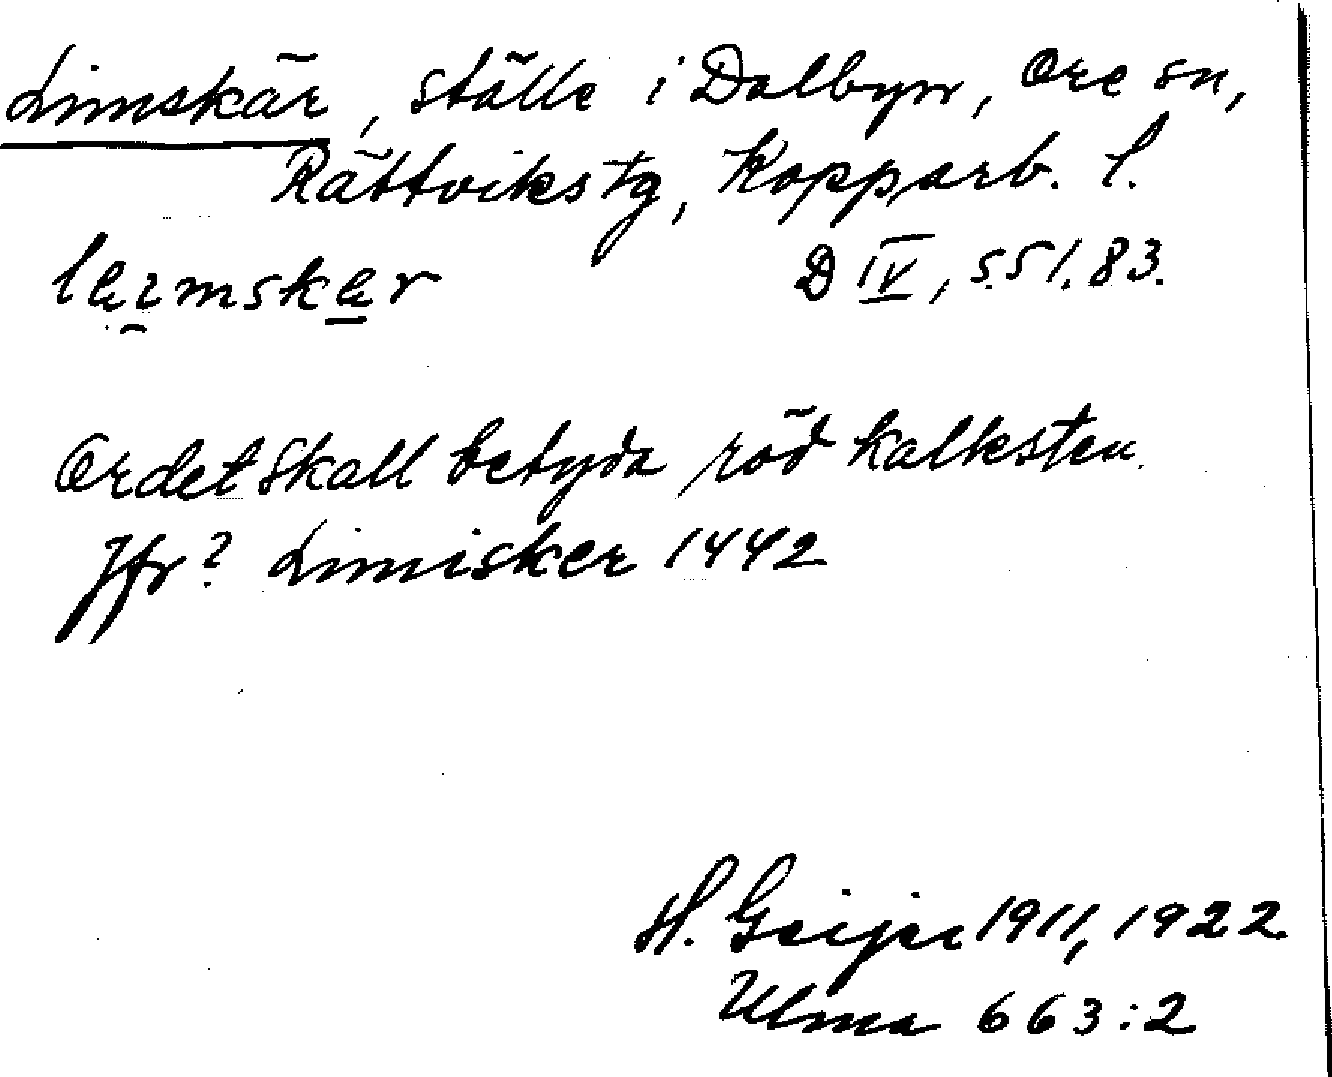 Limskär, ställe i Dalbyn, Ore sn,
Rättviks tg, Kopparb. l.
D IV, s. 51. 83.
Ordet skall betyda röd kalksten.
Jfr? Limisker 1442
H. Geijer 1911, 1922
Ulma 663:2